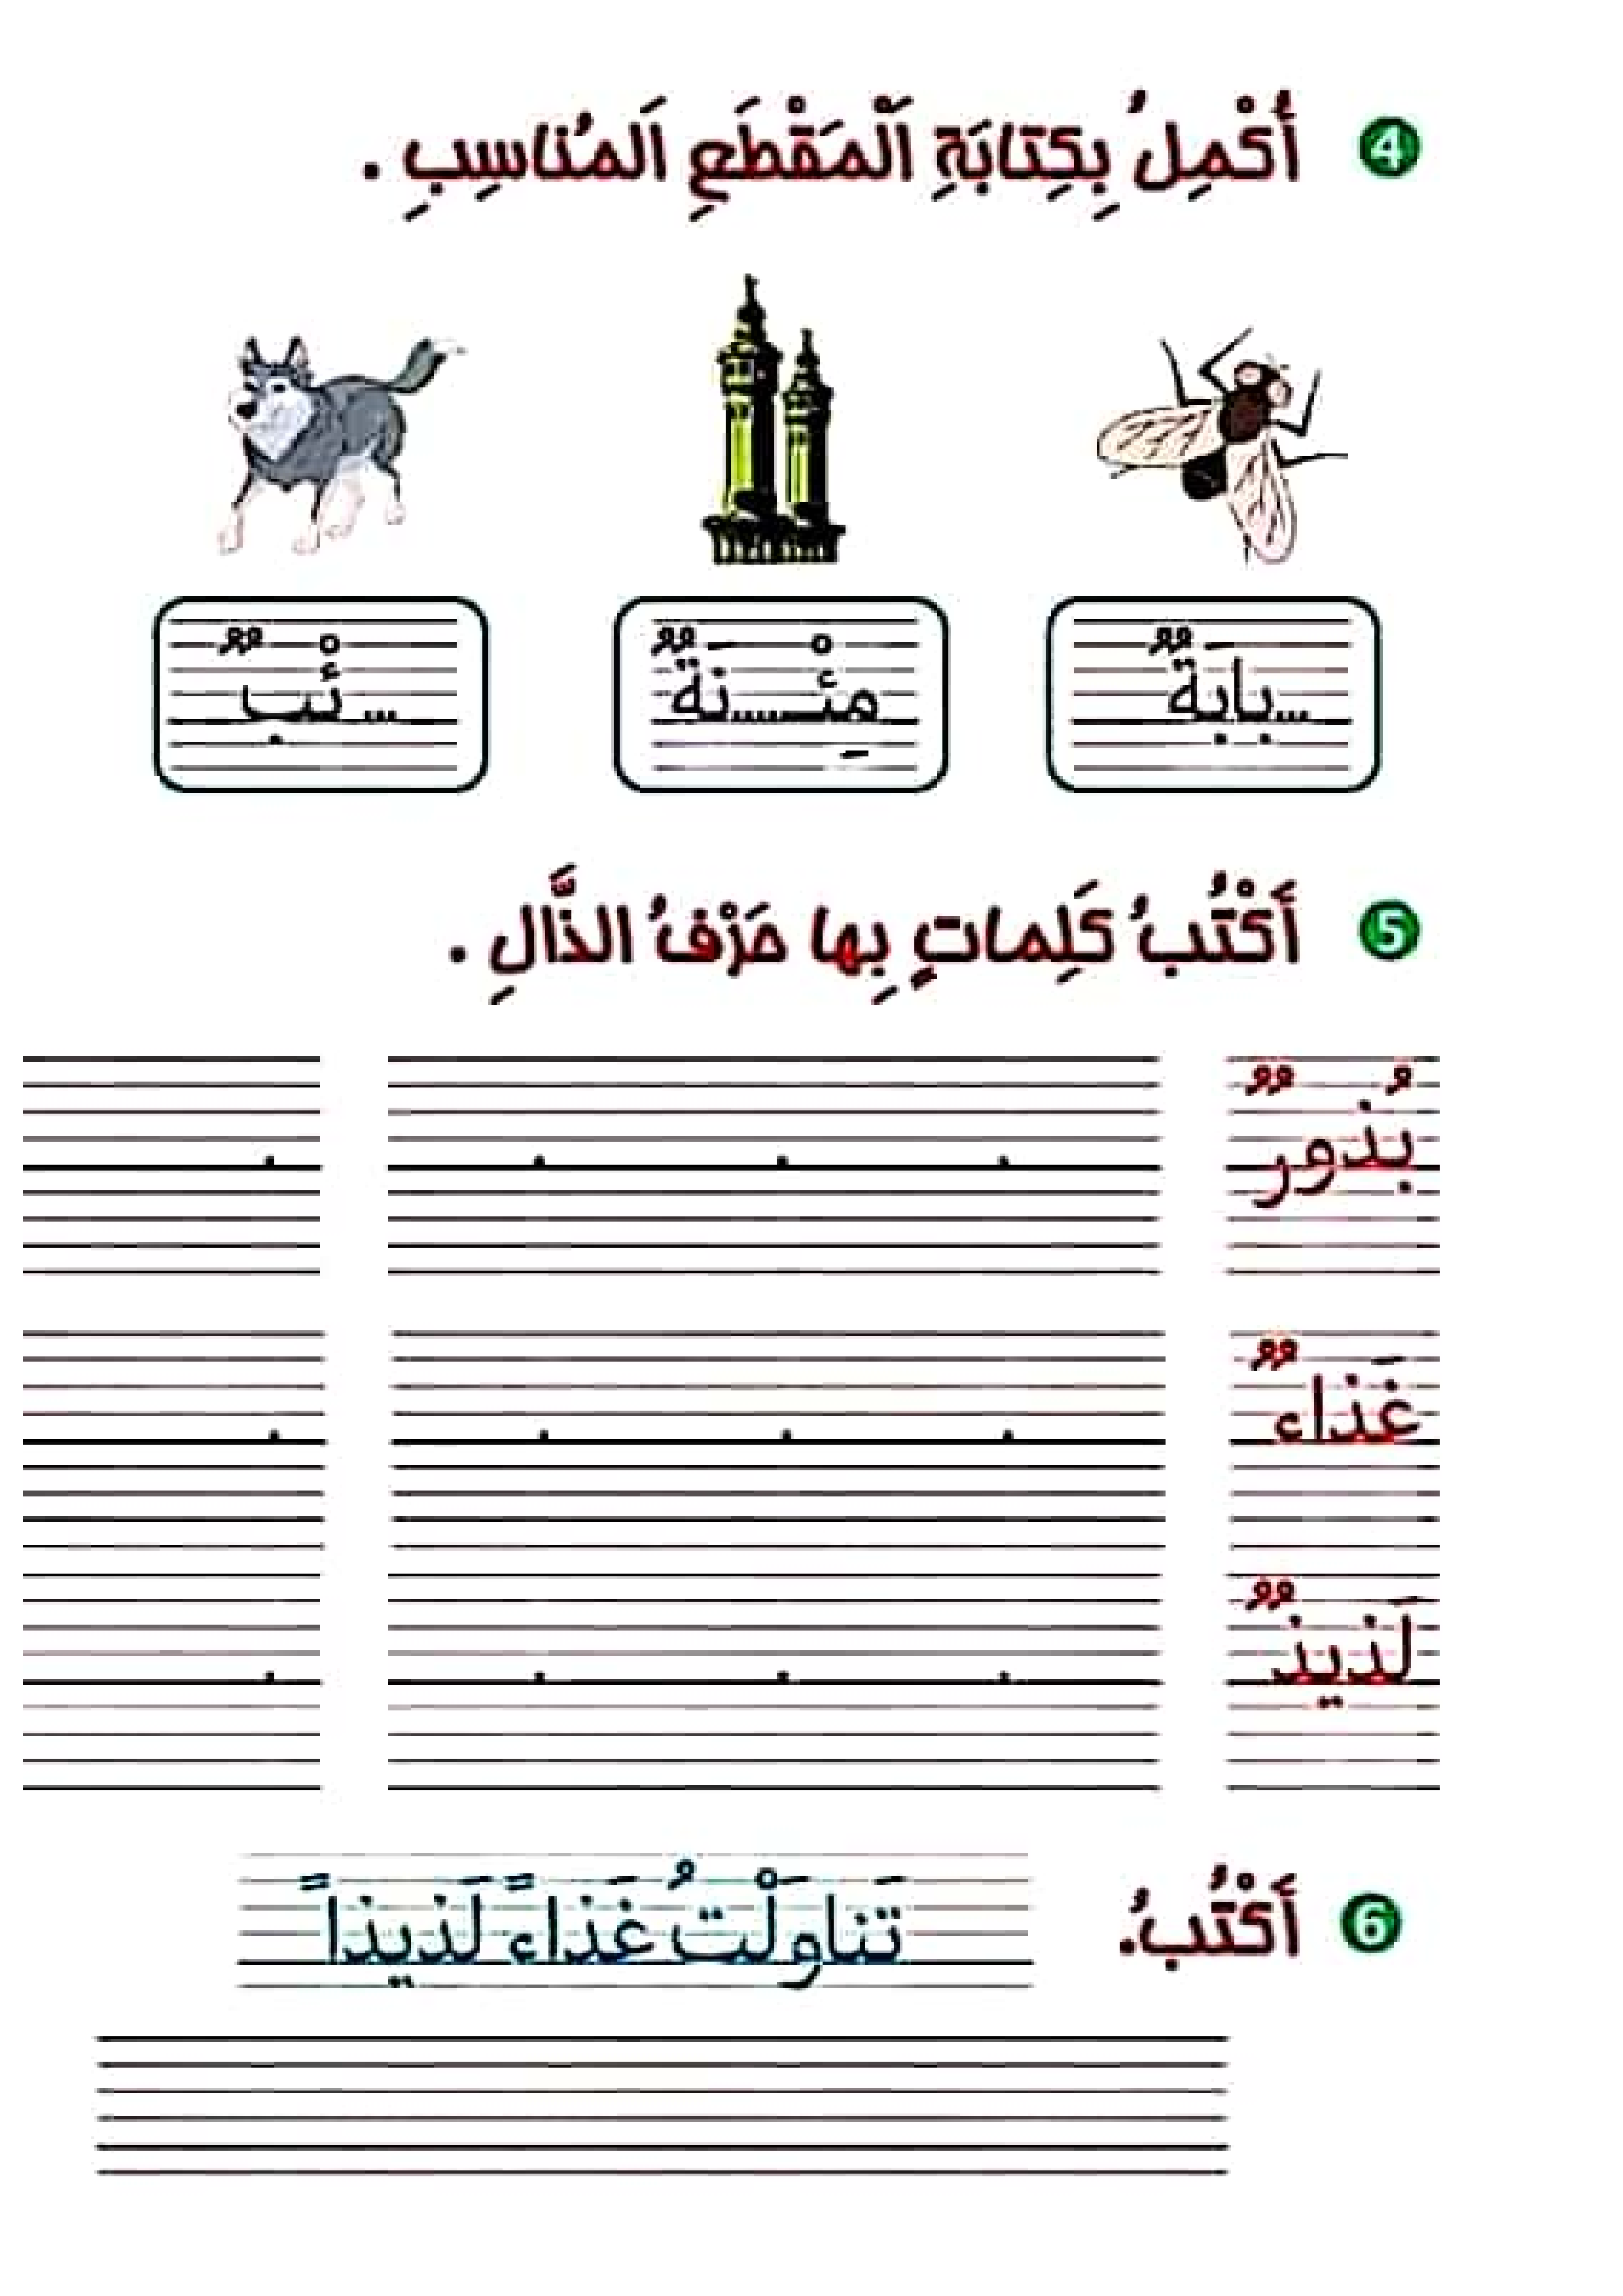 4 أُكْمِلُ بِكِتابَةِ اَلْمَقْطَعِ اَلمُناسِبِ .
...بابَةٌ
مِئْـ.....نَةٌ
... ئْبٌ
5 أَكْتُبُ كَلِماتٍ بِها حَرْفُ الذَّالِ .
بُذورٌ
غَذاءٌ
لَذيذٌ
6 أَكْتُبُ. تَناوَلْتُ غَذاءً لَذيذاً